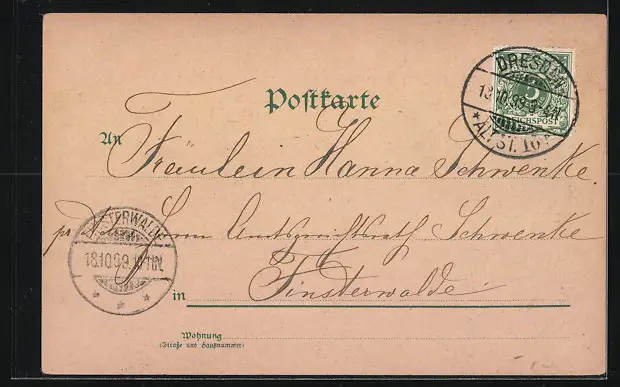 DRESDEN
5
REICHSPOST
* ALTST. 16
Postkarte
An Fräulein Hanna Schwenke.
pr. Adr. Herrn Amtsgerichtsrath Schwenke
FINSTERWALDE
18.10.99.
in Finsterwalde
Wohnung
(Straße und Hausnummer)